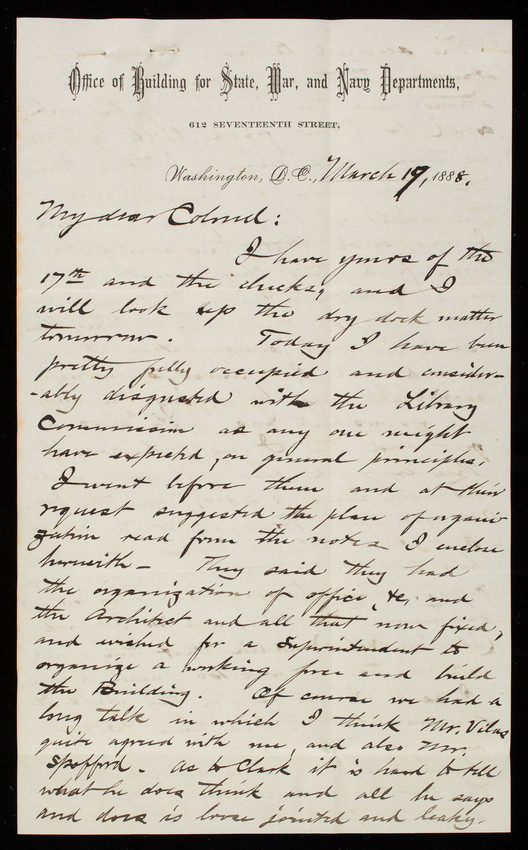 Office of Building for State, War, and Navy Departments,
612 SEVENTEENTH STREET,
Washington, D.C., March 19, 1888.
My dear Colonel:
I have yours of the
17th and the checks, and I
will look up the dry dock matter
tomorrow. Today I have been
pretty fully occupied and consider-
-ably disgusted with the Library
Commission as any one might
have expected, on general principles.
I went before them and at their
request suggested the plan of organi-
zation read from the notes I enclose
herewith - They said they had
the organization of office, &c, and
the Architect and all that now fixed,
and wished for a Superintendent to
organize a working force and build
the Building. Of course we had a
long talk in which I think Mr. Vilas
quite agreed with me, and also Mr.
Spofford. As to Clark it is hard to tell
what he does think and all he says
and does is loose jointed and leaky.